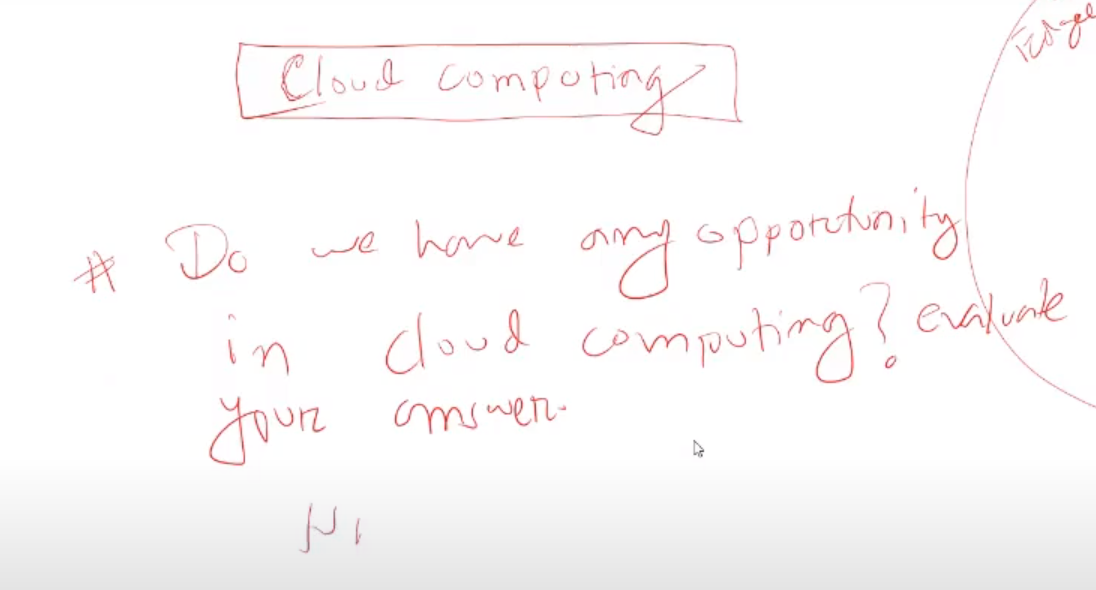 Cloud computing
Edge
# Do we have any opportunity
in cloud computing? evaluate
your answer.